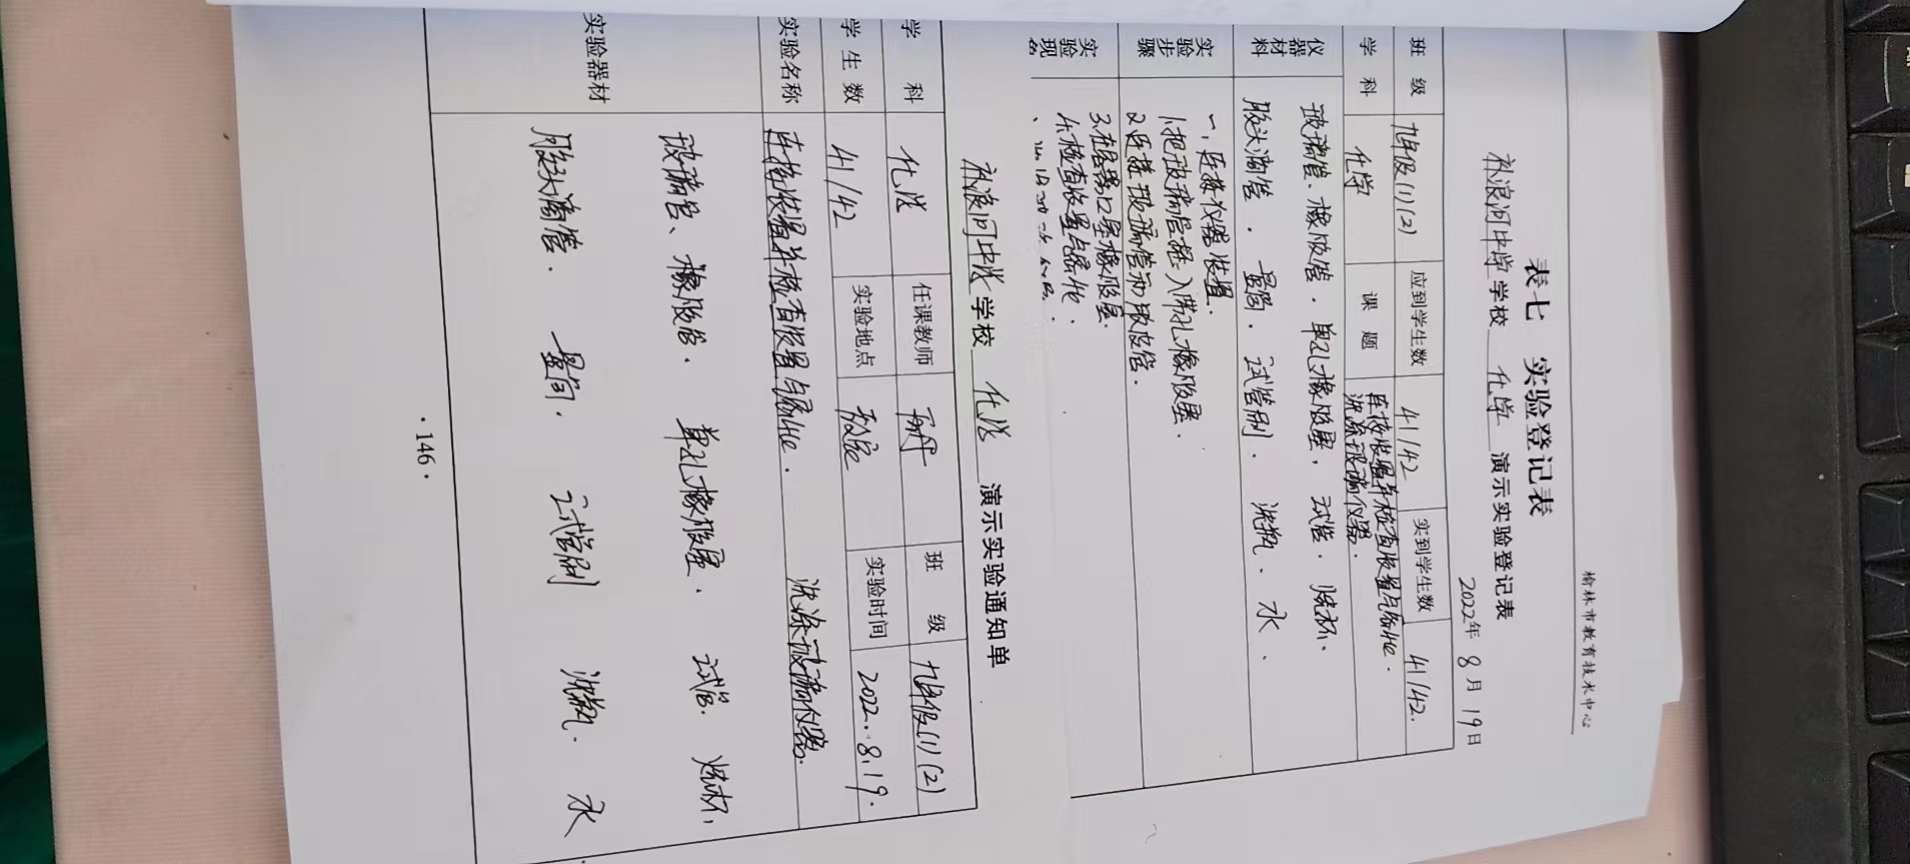 榆林市教育技术中心
表七 实验登记表
补浪河中学学校 化学 演示实验登记表
2022年 8月 19日
班级 九年级(1)(2) 应到学生数 41/42 实到学生数 41/42.
学科 化学 课题 连接装置并检查装置气密性. 洗涤玻璃仪器.
仪器材料 玻璃管、橡胶管. 单孔橡胶塞, 试管. 烧杯.
胶头滴管. 量筒. 试管刷. 洗瓶. 水.
实验步骤 一, 连接仪器装置.
1.把玻璃管插入带孔橡胶塞.
2.连接玻璃管和胶皮管.
3.在容器口塞橡胶塞.
4.检查装置气密性.
实验现
补浪河中学学校 化学 演示实验通知单
学科 化学 任课教师 班级 九年级(1)(2)
学生数 41/42 实验地点 实验时间 2022.8.19.
实验名称 连接装置并检查装置气密性. 洗涤玻璃仪器.
实验器材 玻璃管、橡胶管. 单孔橡胶塞. 试管. 烧杯,
胶头滴管. 量筒. 试管刷 洗瓶. 水
·146·